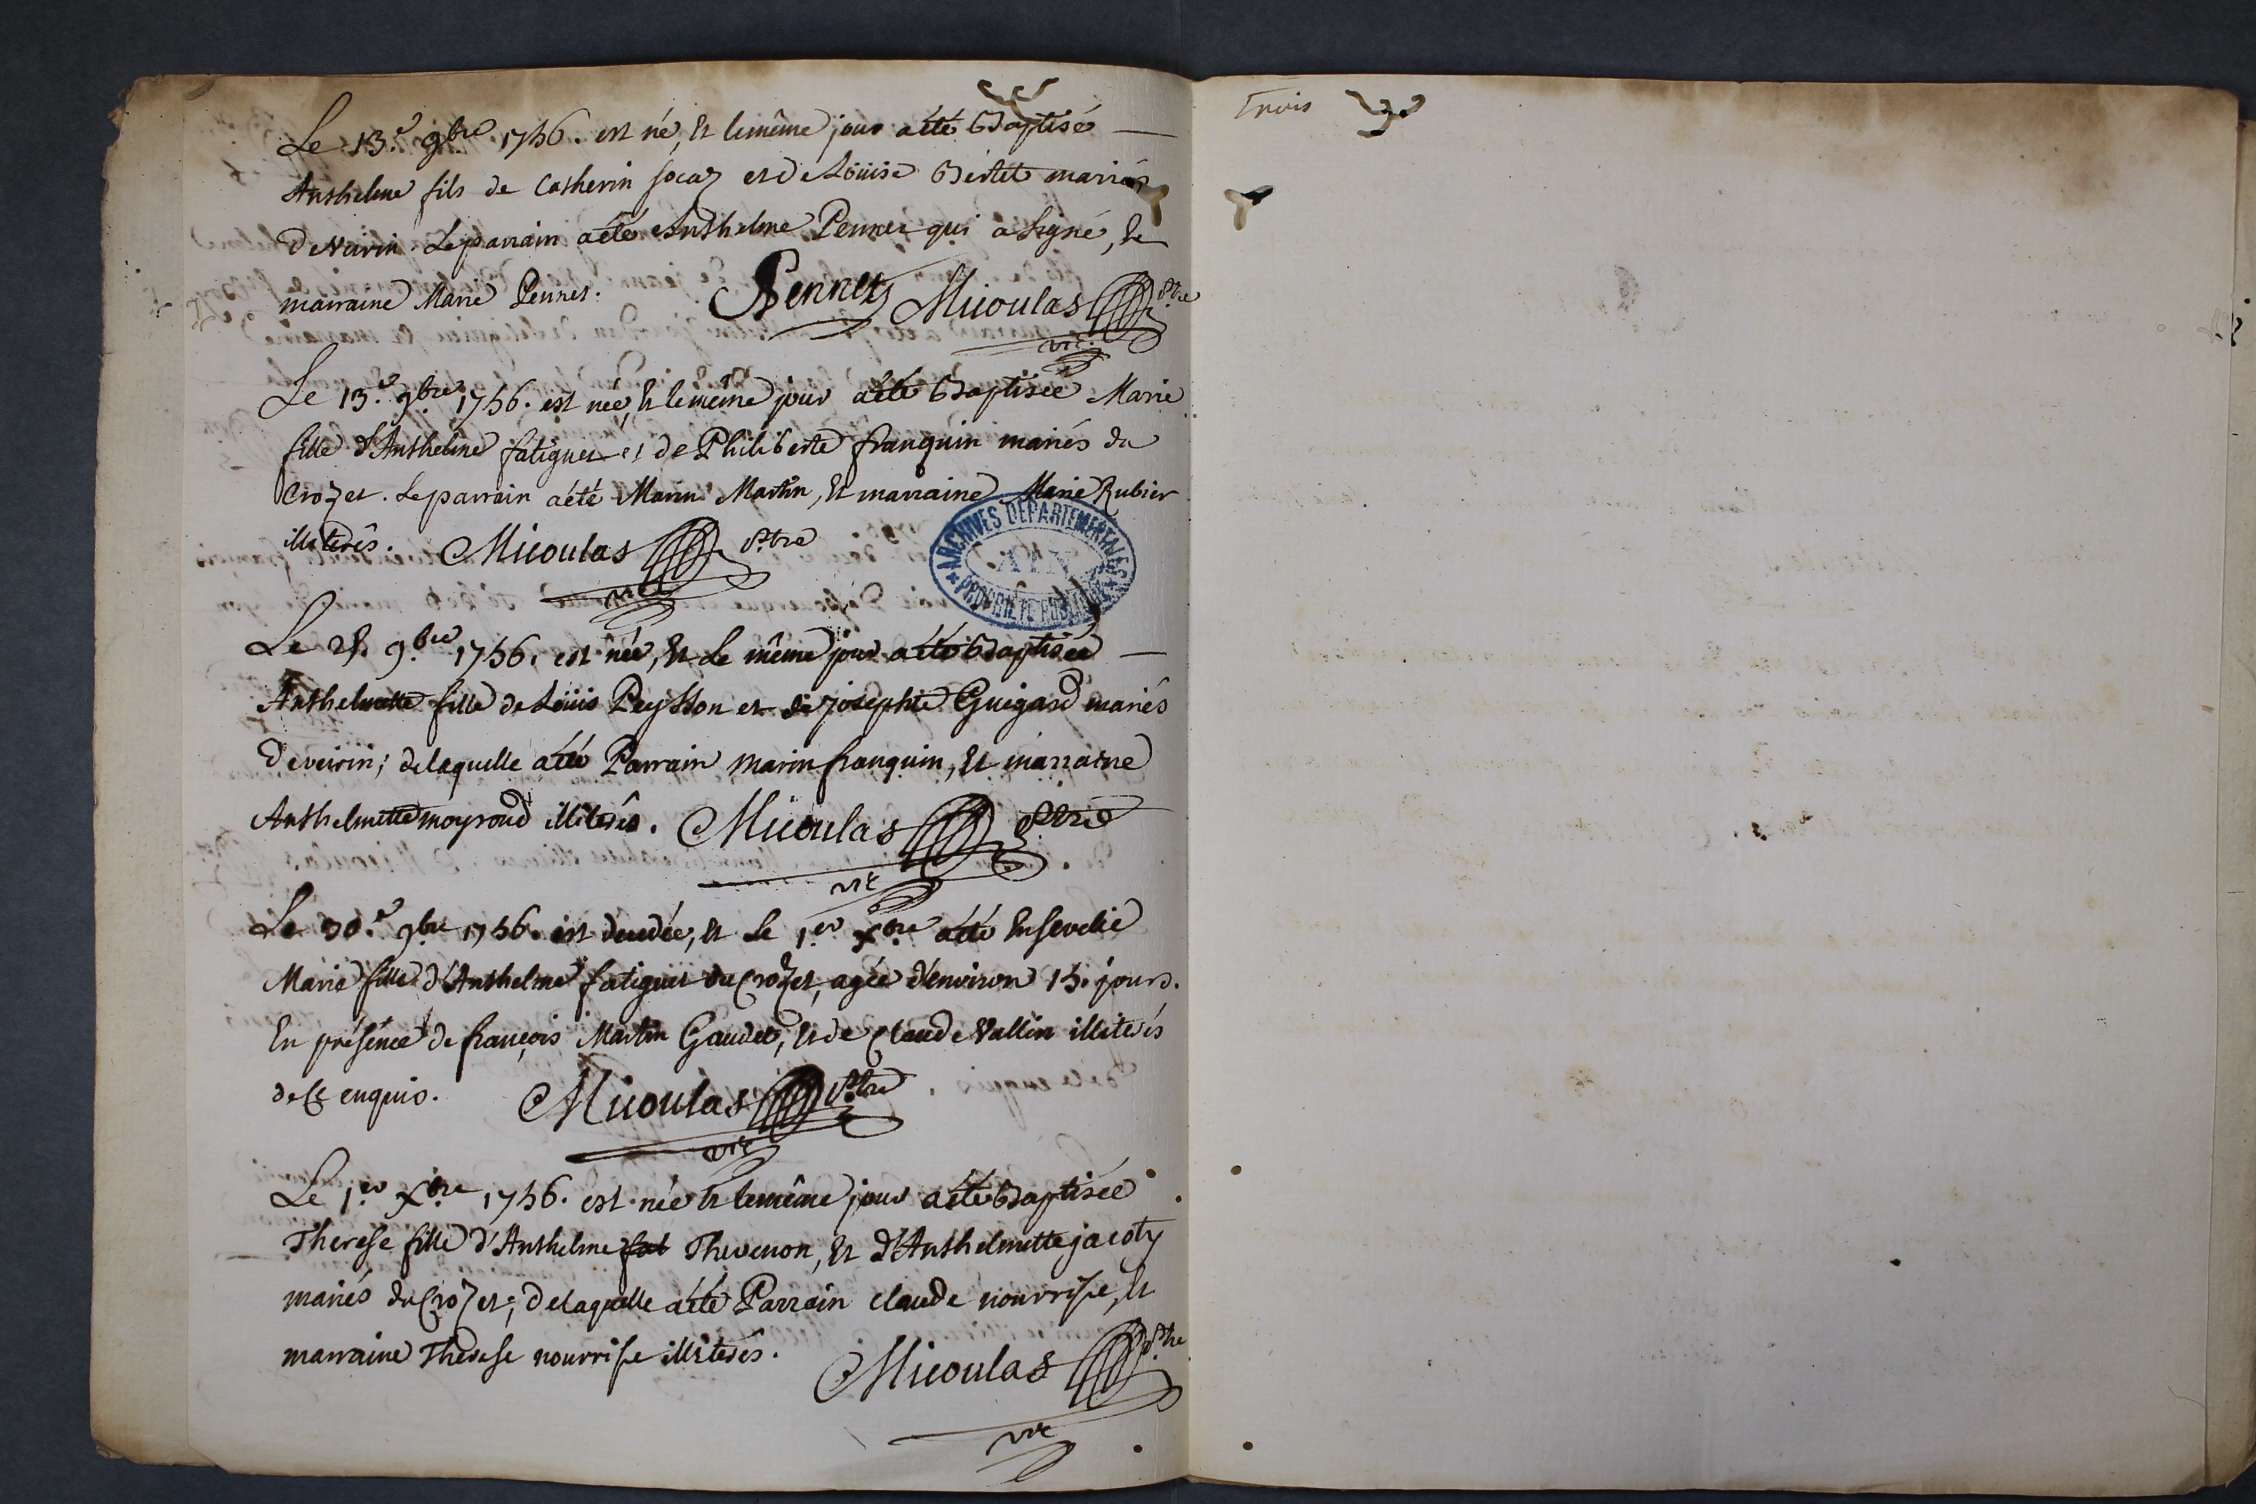 Le 13.e 9bre 1756. est né, Et le même jour a été Baptisé
Anthelme fils de Catherin Jocaz et de Loüise Bertet mariés
de Veirin. Le parrain a été Anthelme Pennet qui a signé, Et
marraine Marie Pennet. Pennet Micoulas Ptre
vic.
Le 15.e 9bre 1756. est née, Et le même jour a été Baptisée Marie
fille d'Anthelme fatiguet et de Philiberte franquin mariés du
Crozet. Le parrain a été Marin Martin, Et marraine Marie Rubier
illiterés. Micoulas Ptre
vic
ARCHIVES DEPARTEMENTALES
AIN
PROPRIETE PUBLIQUE
Le 9.bre 1756. est née, Et Le même jour a été Baptisée
Anthelmette fille de Loüis Peysson et de josephte Guigard mariés
de veirin; de laquelle a été Parrain marin franquin, Et marraine
Anthelmette moyroud illiterés. Micoulas Ptre
vic
Le 30.e 9bre 1756. est decedée, et Le 1.er Xbre a été Ensevelie
Marie fille d'Anthelme fatiguet du Crozet, agée d'environ 15. jours.
En présence de françois Martin Gaudet, Et de Claude Vallin illiterés
de ce enquis. Micoulas Ptre
vic
Le 1.er Xbre 1756. est née Et le même jour a été Baptisée
Therese fille d'Anthelme fat Thevenon, Et d'Anthelmette jacoty
mariés du Crozet; de laquelle a été Parrain claude nourrise, Et
marraine Therese nourrise illiterés. Micoulas Ptre
vic
Trois